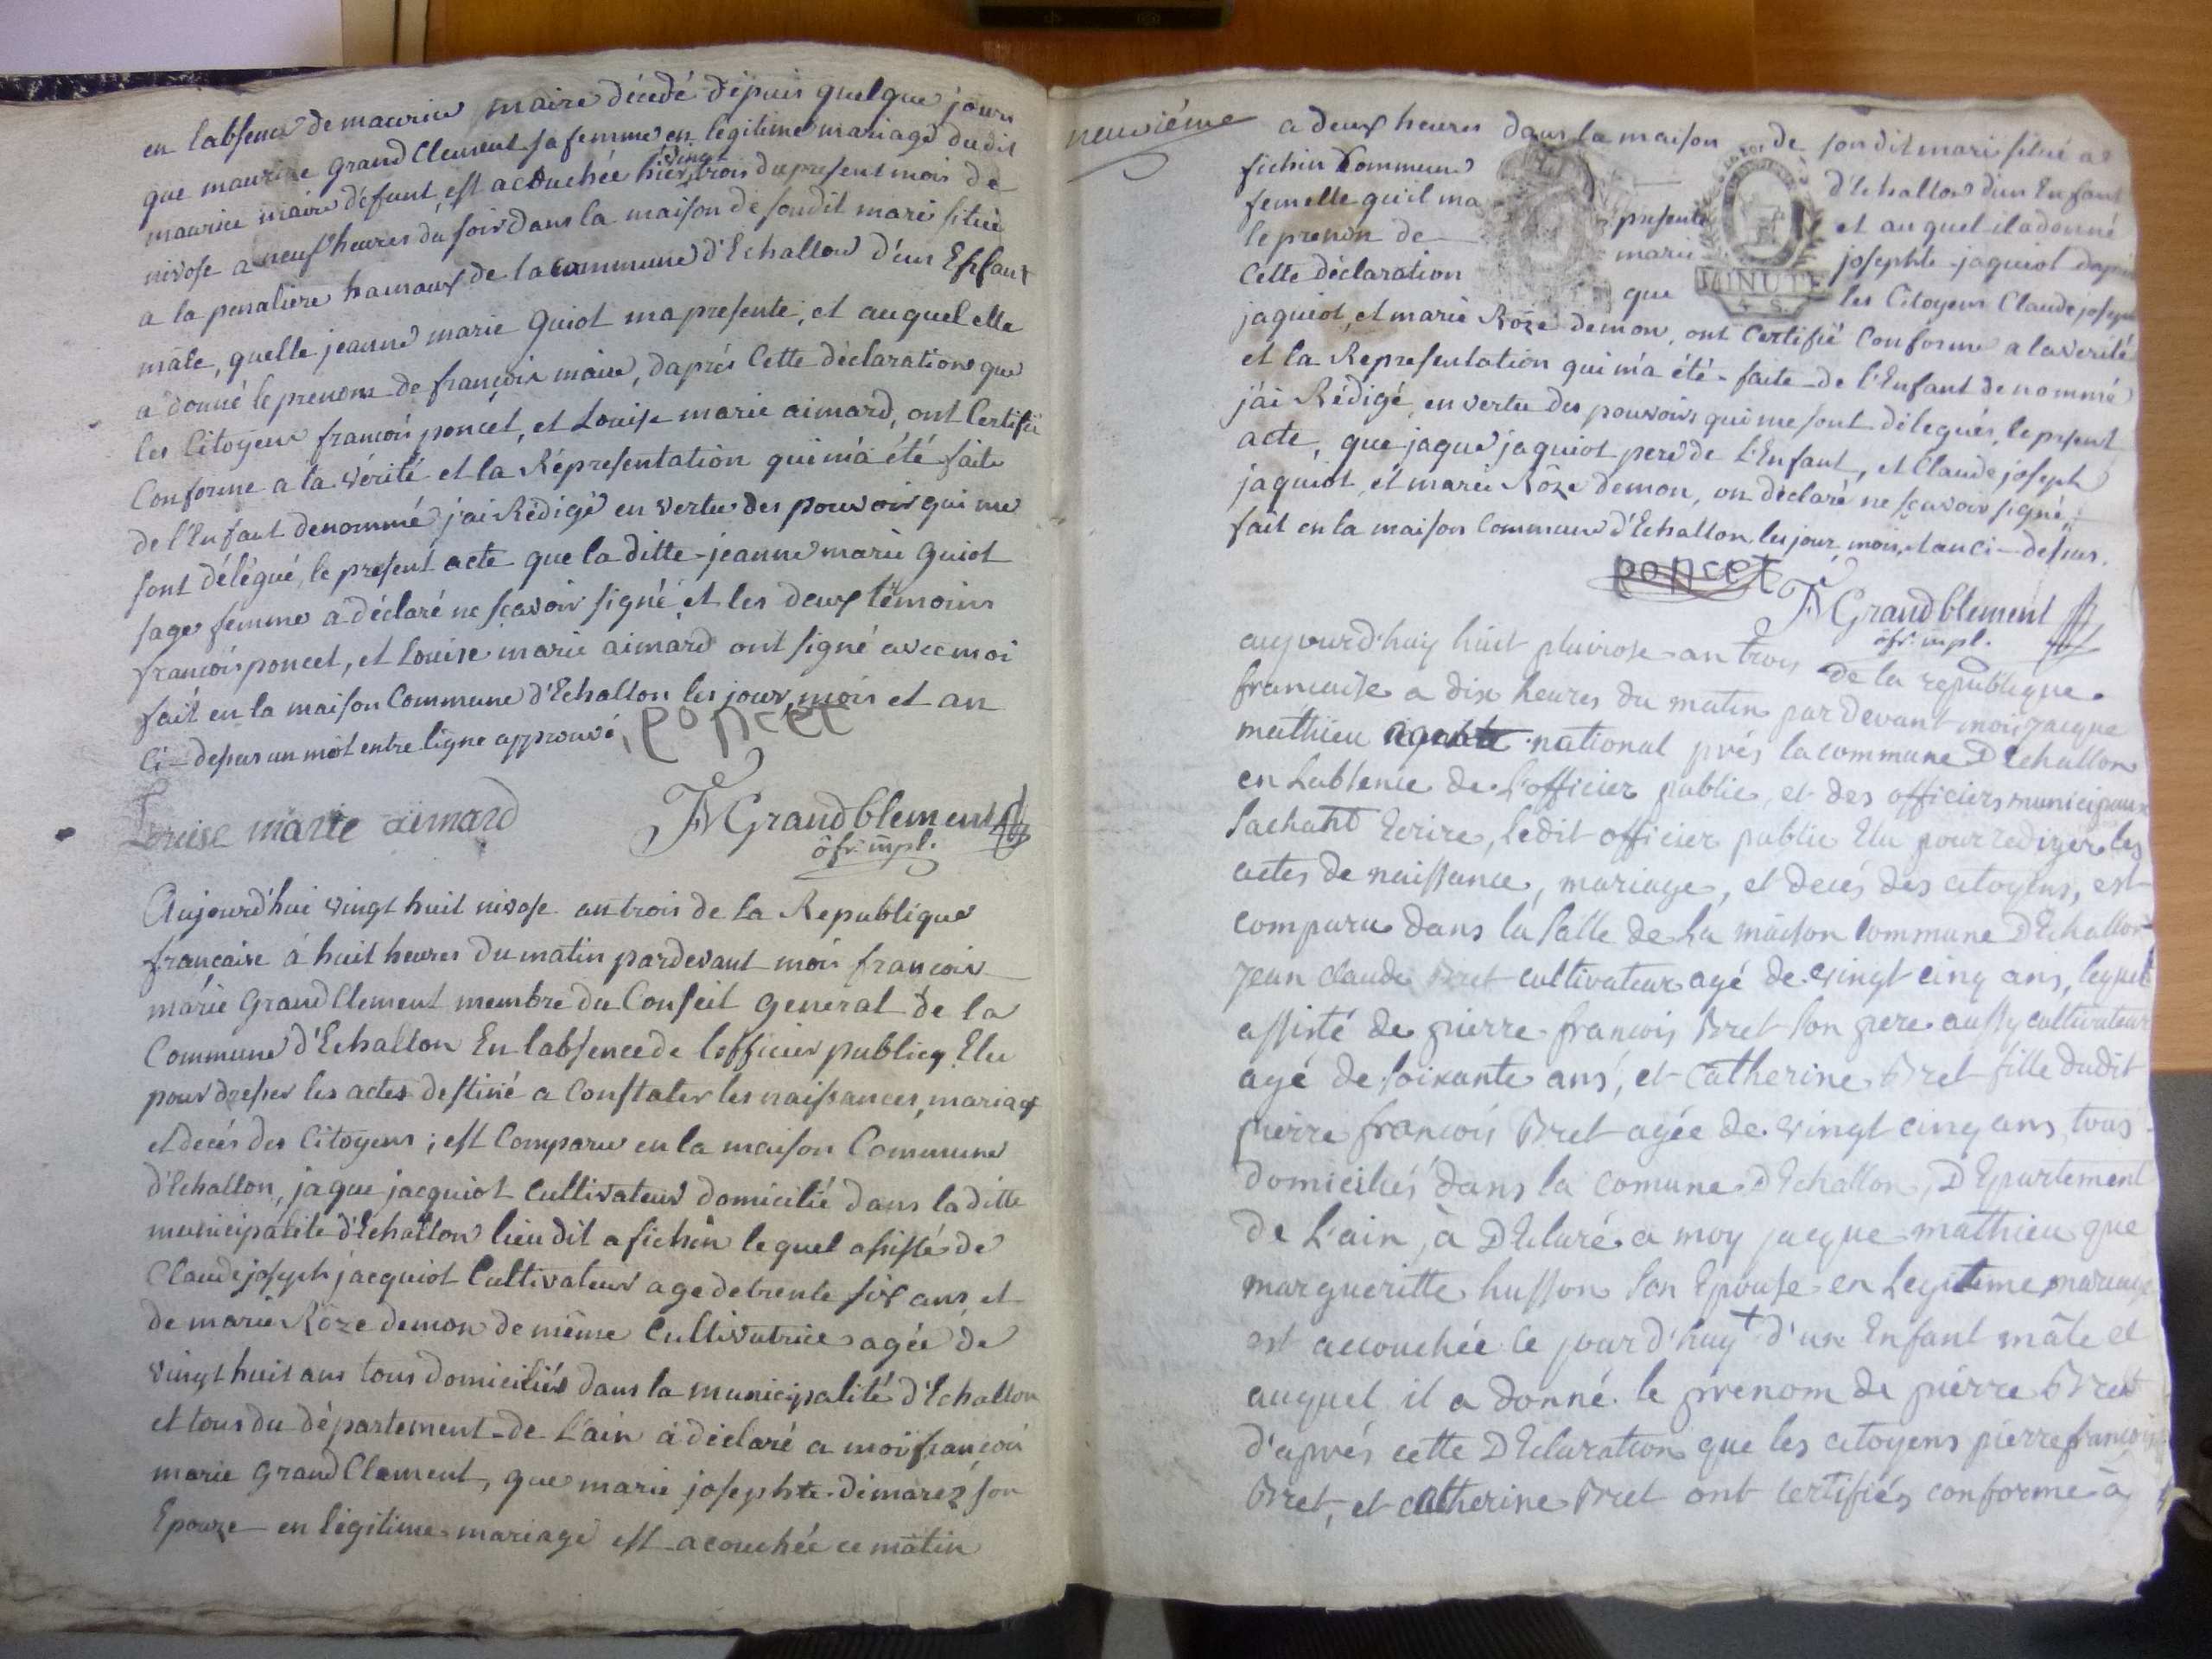 en labsence de maurice maire décédé dépuis quelque jours
que maurize grand Clement sa femme en legitime mariage dudit
maurice maire défunt, est acouchée hier vingt trois du present mois de
nivose a neuf heures du soir dans la maison de sondit mari situé
a la penaliere hamaux de la commune d'Echallon d'un Enfant
mâle, quelle jeanne marie Guiot ma presenté, et auquel elle
a donné le prenom de françois maire, daprés Cette déclaration que
les Citoyens françois poncet, et Louise marie aimard, ont Certifié
Conforme a la vérité et la Répresentation qui m'a été faite
de l'Enfant denommé j'ai Rédigé en vertu des pouvoir qui me
sont délégué, le present acte que la ditte jeanne marie Guiot
sage femme a déclaré ne sçavoir signé et les deux témoins
françois poncet, et Louise marie aimard ont signé avec moi
fait en la maison Commune d'Echallon les jour, mois et an
Ci-desus un mot entre ligne approuvé poncet
Louise marie aimard
FMGrandClement
ofr. mpl.
Aujourd'hui vingt huit nivose an trois de la Republique
francaise á huit heures du matin pardevant moi françois
marie Grand Clement membre du Conseil general de la
Commune d'Echallon En labsence de lofficier publicq Elu
pour dresser les actes destiné a Constater les naissances, mariage
et decés des Citoyens ; est Comparu en la maison Commune
d'Echallon, jaque jacquiot Cultivateur domicilié dans la ditte
municipalité d'Echallon lieu dit a fichin lequel assisté de
Claude joseph jacquiot Cultivateur age de trente six ans et
de marie Rôze demon de même Cultivatrice agée de
vingt huit ans tous domiciliés dans la municipalité d'Echallon
et tous du département de L'ain a déclaré a moi françois
marie Grand Clement, que marie josephte dimarez son
Epouze en légitime mariage est acouchée ce matin
neuvième
a deux heures dans la maison de son dit mari situé a
fichin Commune d'Echallon d'un Enfant
femelle qu'il ma presenté et auquel il a donné
le prenon de marie josephte jaquiot daprés
Cette déclaration que les Citoyens Claude joseph
MINUTE
4 S.
jaquiot, et marie Rôze demon, ont Certifié Conforme a la verité
et la Representation qui m'a été faite de l'Enfant denommé
j'ai Rédigé en vertu des pouvoirs qui me sont délegués, le present
acte, que jaque jaquiot pere de l'Enfant, et Claude joseph
jaquiot, et marie Rôze demon, on déclaré ne sçavoir signé,
fait en la maison Commune d'Echallon les jour, mois, et an ci-desus.
poncet
FMGrandClement
ofr. mpl.
aujourd'huy huit pluviose an trois de la republique
francaise a dix heures du matin par devant moi jacque
mathieu agent national prés la commune D'Echallon
en Labsence de l'officier public, et des officiers municipaux
sachant Ecrire, ledit officier public Elu pour rediger les
actes de naissance, mariage, et decés des citoyens, est
comparu dans la salle de la maison commune D'Echallon
jean claude Bret cultivateur agé de vingt cinq ans, lequel
assisté de pierre francois Bret son pere aussy cultivateur
agé de soixante ans, et catherine Bret fille dudit
pierre francois Bret agée de vingt cinq ans, tous
domiciliés dans la comune D'Echallon, DEpartement
de L'ain, à DEclaré a moy jacque mathieu que
margueritte husson son Epouse en Legitime mariage
est accouchée ce jourd'huy + d'un Enfant mâle et
auquel il a donné le prenom de piérre Bret
d'aprés cette DEclaration que les citoyens pierre francois
Bret, et catherine Bret ont certifiés conforme à